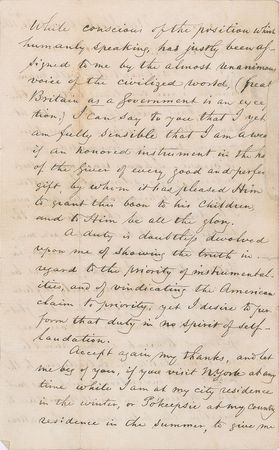 While conscious of the position which
humanly speaking, has justly been as-
signed to me by the almost unanimous
voice of the civilized world, (Great
Britain as a Government is an excep-
tion,) I can say to you that I yet
am fully sensible that I am a
if an honored instrument in the
of the Giver of every good and perfect
gift, by whom it has pleased Him
to grant this boon to his children,
and to Him be all the glory.
A duty is doubtless devolved
upon me of showing the truth in
regard to the priority of instrumental-
ities, and of vindicating the American
claim to priority, yet I desire to per
form that duty in no spirit of self-
laudation.
Accept again my thanks, and let
me beg of you, if you visit N York at any
time while I am at my city residence
in the winter, or Po'keepsie at my country
residence in the summer, to give me